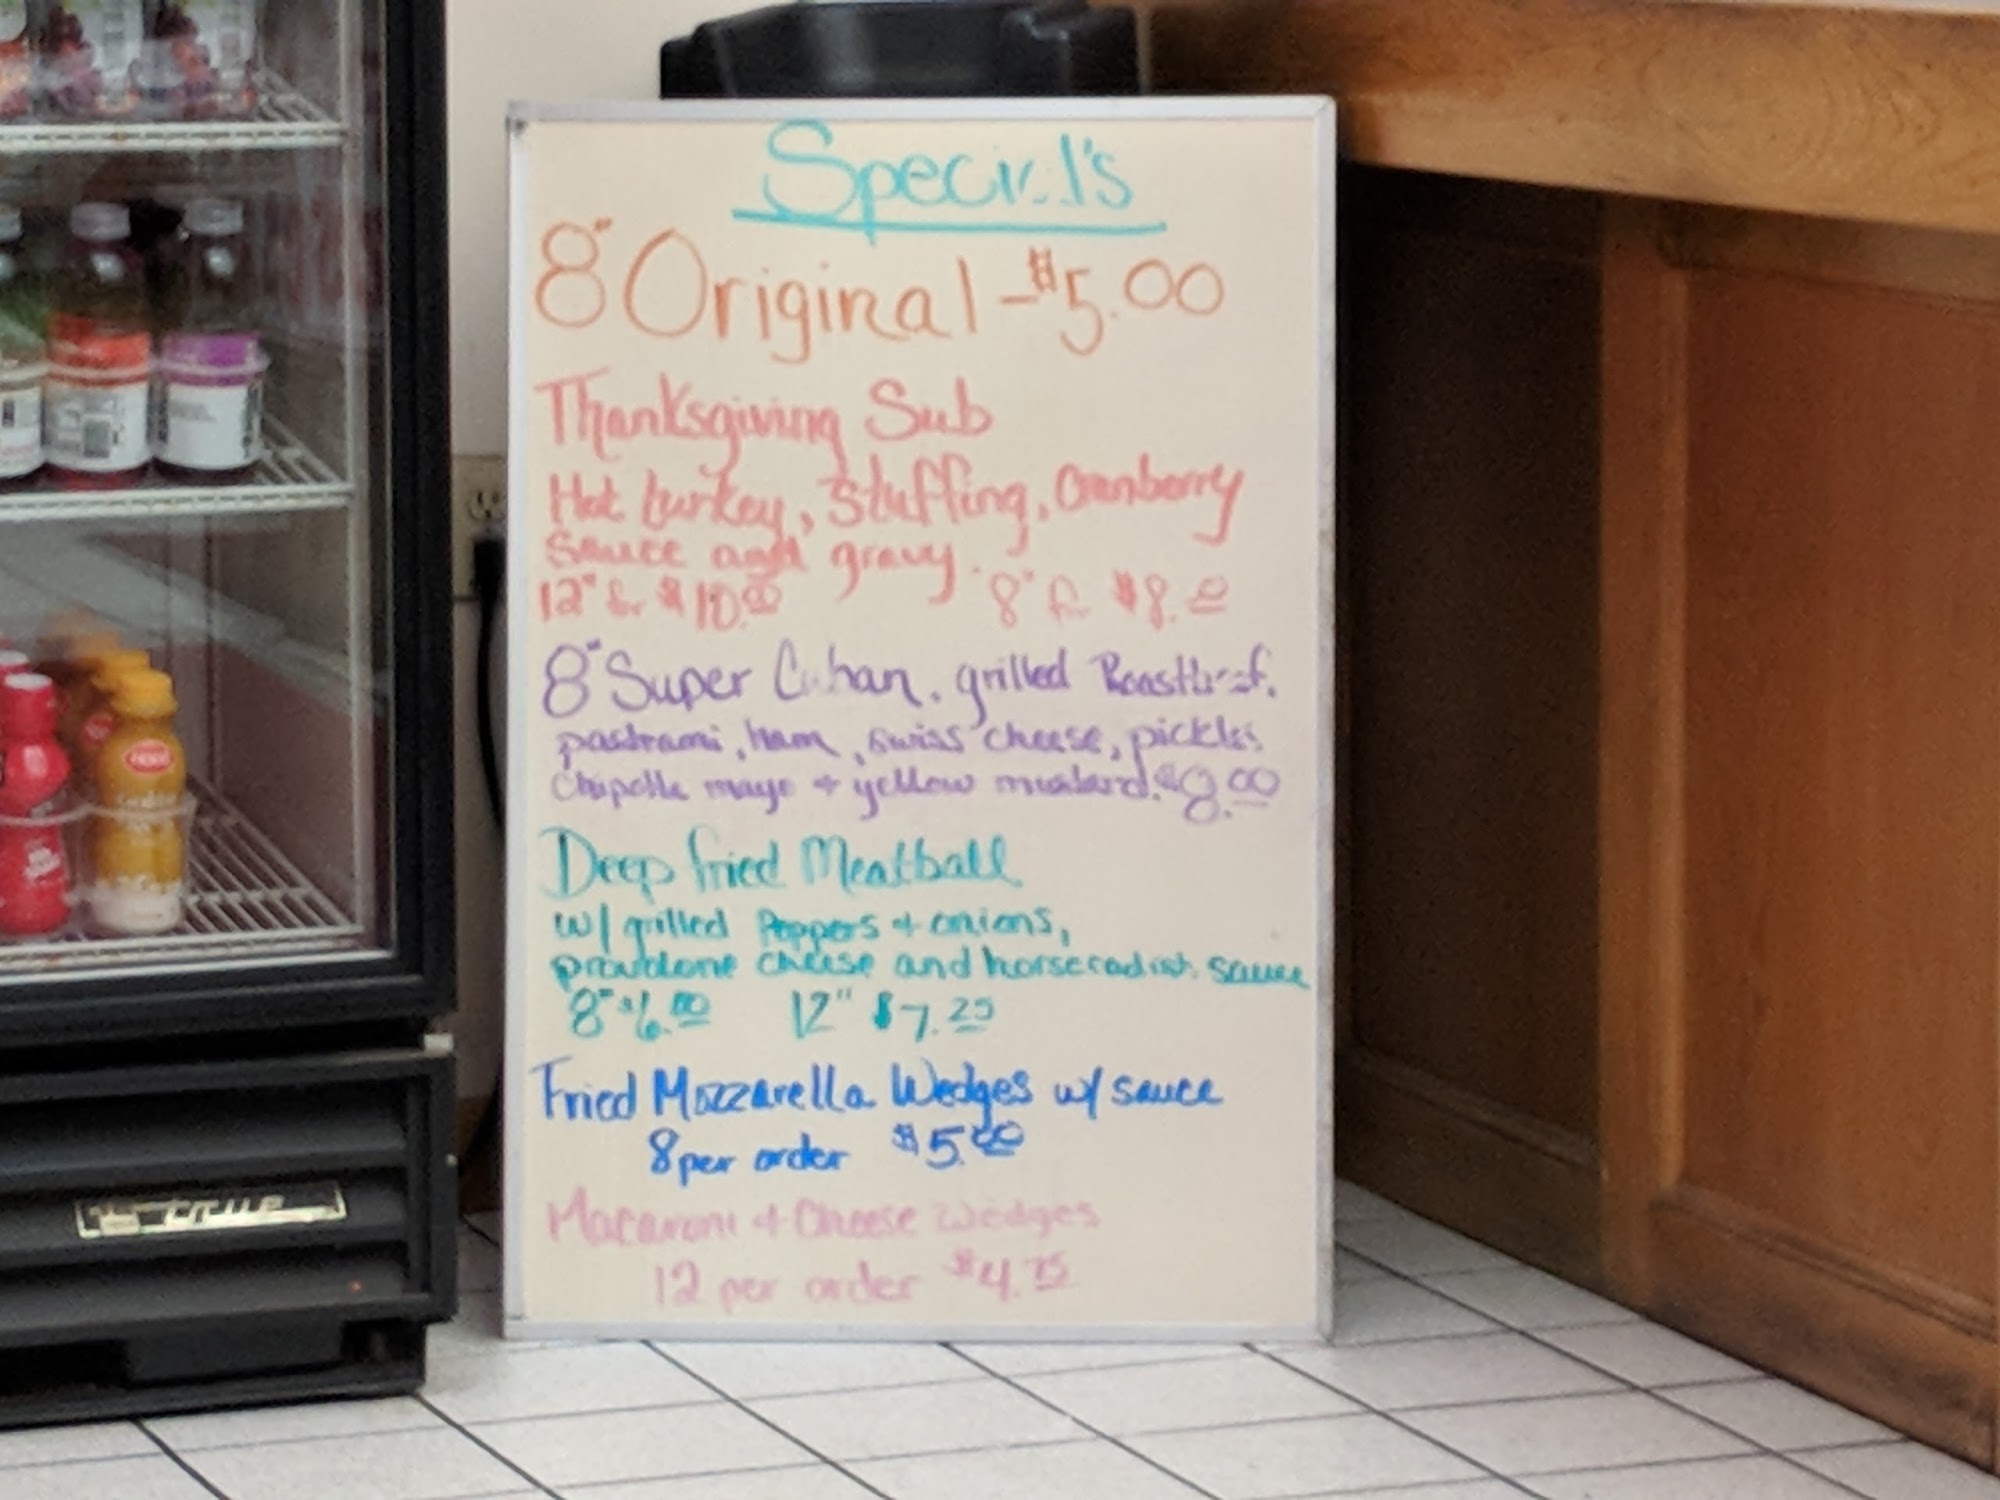 Special's
8" Original - $5.00
Thanksgiving Sub
Hot turkey, Stuffing, Cranberry
Sauce and gravy.
12" for $10.00 8" for $8.00
8" Super Cuban. grilled Roastbeef.
pastrami, ham, swiss cheese, pickles
Chipotle mayo + yellow mustard. $8.00
Deep fried Meatball
w/ grilled Peppers + onions,
provolone cheese and horseradish sauce
8" $6.00 12" $7.25
Fried Mozzarella Wedges w/ sauce
8 per order $5.00
Macaroni + Cheese Wedges
12 per order $4.75
true